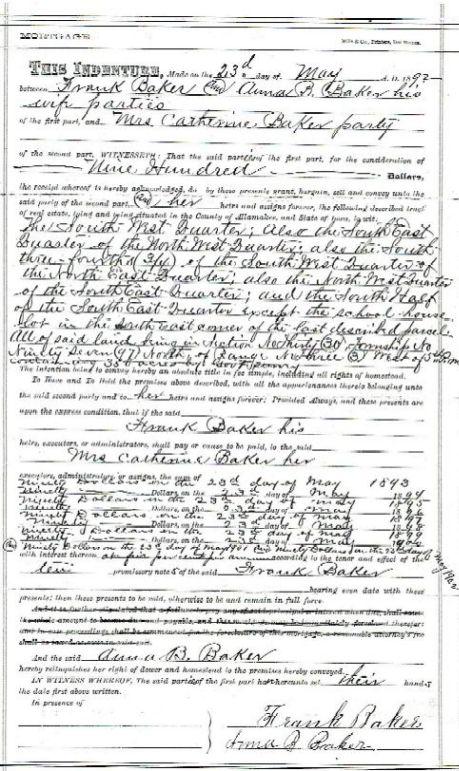 MORTGAGE
THIS INDENTURE, Made on the 23d day of May A.D. 1892
between Frank Baker and Anna B. Baker his
wife parties
of the first part, and Mrs Catherine Baker party
of the second part, WITNESSETH: That the said parties of the first part, for the consideration of
Nine Hundred Dollars,
the receipt whereof is hereby acknowledged, do by these presents grant, bargain, sell and convey unto the
said party of the second part, and her heirs and assigns forever, the following described tract
of real estate, lying and being situated in the County of Allamakee, and State of Iowa, to wit:
The South West Quarter; Also the South East
Quarter of the North West Quarter; also the South
three-fourth (3/4) of the South West Quarter of
the North East Quarter; also the North West Quarter
of the South East Quarter; and the South Half
of the South East Quarter except the school house
lot in the South east corner of the last described parcel
All of said land lying in Section No Thirty (30) Township No
Ninety Seven (97) North, of Range No three (3) West of 5th P.M.
The intention being to convey hereby an absolute title in fee simple, including all rights of homestead.
To Have and To Hold the premises above described, with all the appurtenances thereto belonging unto
the said second party and to her heirs and assigns forever: Provided Always, and these presents are
upon the express condition, that if the said
Frank Baker his
heirs, executors, or administrators, shall pay or cause to be paid, to the said
Mrs Catherine Baker her
executors, administrators or assigns, the sum of
Ninety Dollars on the 23d day of May 1893
Ninety Dollars, on the 23d day of May 1894
Ninety Dollars on the 23d day of May 1895
Ninety Dollars, on the 23d day of May 1896
Ninety Dollars on the 23d day of May 1897
Ninety Dollars, on the 23d day of May 1898
Ninety Dollars on the 23d day of May 1899
Ninety Dollars, on the 23d day of May
Ninety Dollars on the 23d day of May 1901 and Ninety Dollars on the 23d day of May
with interest thereon according to the tenor and effect of the
promissory notes of the said Frank Baker
bearing even date with these
presents; then these presents to be void, otherwise to be and remain in full force.
And the said Anna B. Baker
hereby relinquishes her right of dower and homestead in the premises hereby conveyed.
IN WITNESS WHEREOF, The said parties of the first part hereunto set their hands
the date first above written.
In presence of
Frank Baker
Anna B Baker